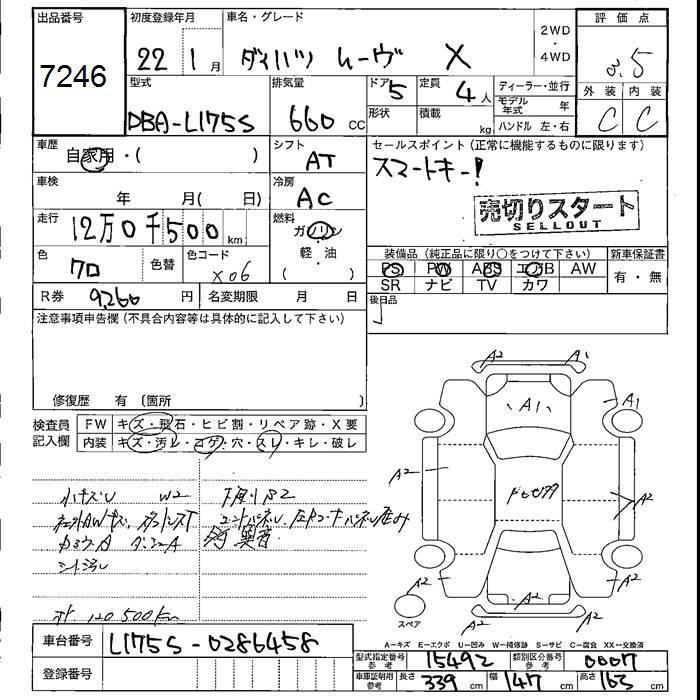 出品番号
7246
初度登録年月
22 1月
車名・グレード
ダイハツ ムーヴ X
2WD
・
4WD
評価点
3.5
外装 内装
C C
型式
DBA-L175S
排気量
660 CC
ドア 5
形状
定員 4人
積載 kg
ディーラー・並行
モデル年式 年
ハンドル 左・右
車歴
自家用・( )
シフト
AT
セールスポイント(正常に機能するものに限ります)
スマートキー!
車検
年 月( 日)
冷房
AC
売切りスタート
SELLOUT
走行
12万0千500km
燃料
ガソリン
軽・油
色
クロ
色替
色コード
X06
装備品(純正品に限り○をつけて下さい)
新車保証書
PS PW ABS エアB AW
SR ナビ TV カワ
有・無
R券 9,260円
名変期限 月 日
後日品
注意事項申告欄(不具合内容等は具体的に記入して下さい)
修復歴 有(箇所 )
検査員
記入欄
FW キズ・飛石・ヒビ割・リペア跡・X要
内装 キズ・汚レ・コゲ・穴・スレ・キレ・破レ
W2
下廻りS2
異音
120,500km
A2 A1
A1 A1
A2 A2
A2 A2
A2
A2 A2
スペア
A-キズ E-エクボ U-凹み W-補修跡 S-サビ C-腐食 XX-交換済
車台番号
L175S-0286458
登録番号
型式指定番号参考 15492
類別区分番号参考 0007
車庫証明用参考 長さ 339cm 幅 147cm 高さ 163cm